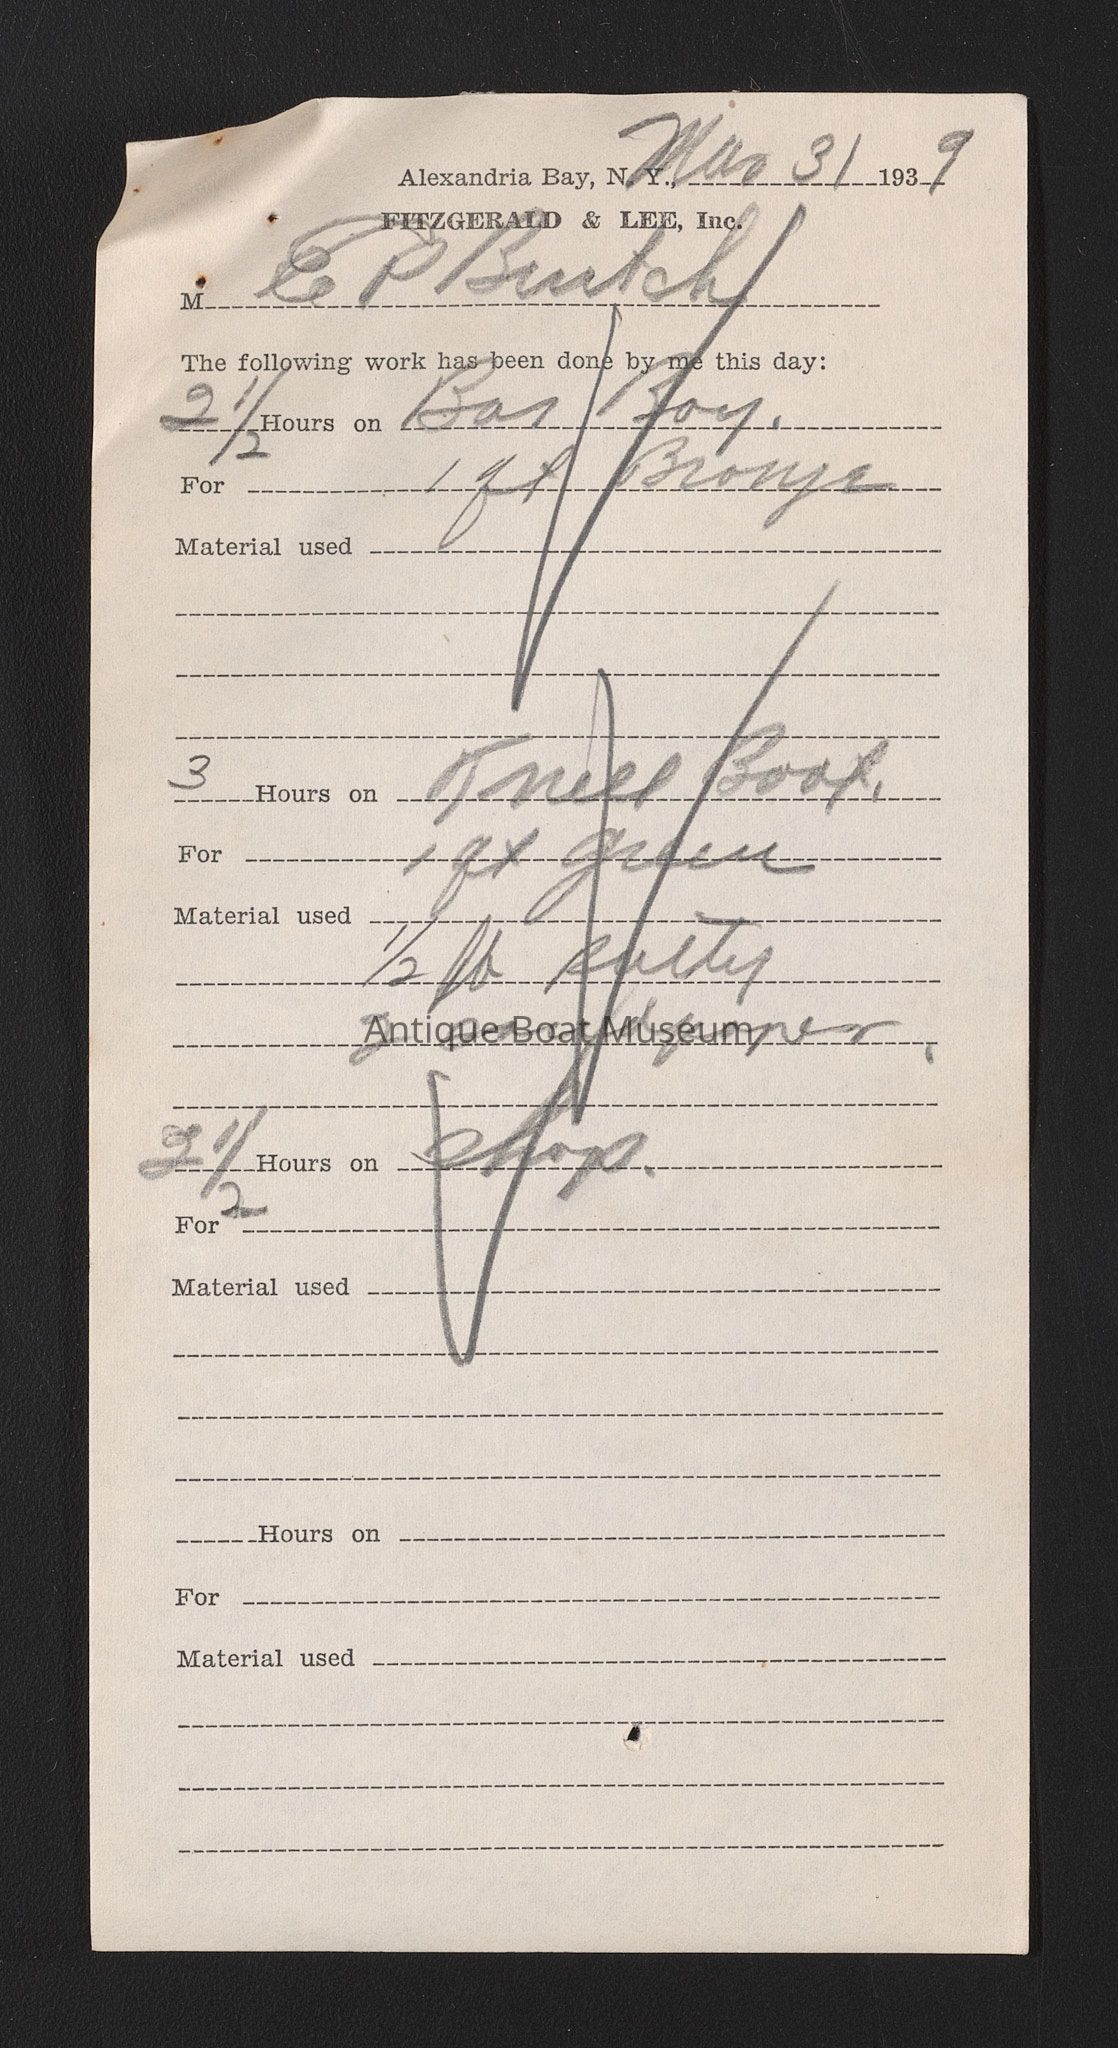 Alexandria Bay, N. Y., Mar 31 1939
FITZGERALD & LEE, Inc.
M E P Burtch
The following work has been done by me this day:
2 1/2 Hours on Bar Boy.
For 1 qt Bronze
Material used
3 Hours on Knell Boat.
For 1 qt green
Material used
1/2 lb putty
Antique Boat Museum
2 sandpaper.
2 1/2 Hours on shop.
For
Material used
Hours on
For
Material used